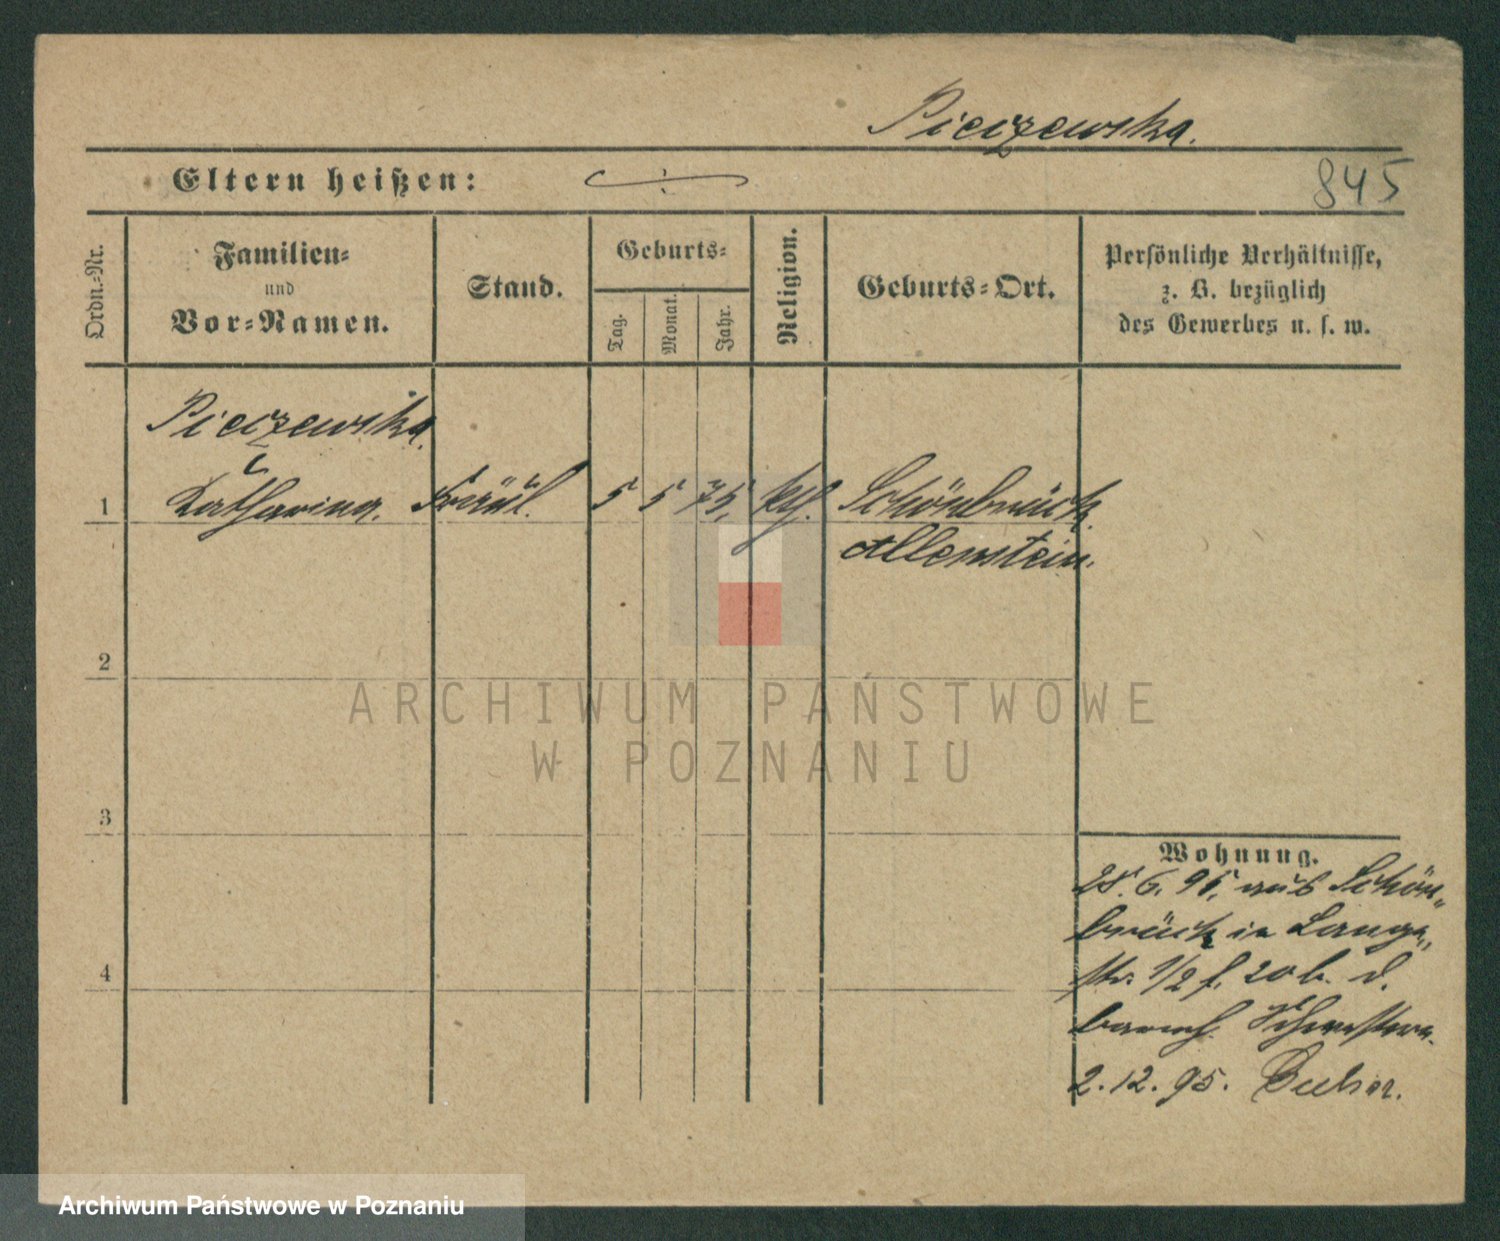 Pieczewska.
Eltern heißen:
845
Ordn.-Nr.
Familien-
und
Vor-Namen.
Stand.
Geburts-
Tag.
Monat.
Jahr.
Religion.
Geburts-Ort.
Persönliche Verhältnisse,
z. B. bezüglich
des Gewerbes u. s. w.
Pieczewska.
1 Katharina. Fräul. 5 5 75, kth. Schönbrück.
Allenstein.
2
ARCHIWUM PAŃSTWOWE
W POZNANIU
3
Wohnung.
28. 6. 95, aus Schön-
brück in Lange-
str. 1/2 f. 20 b. d.
barmh. Schwestern.
4
2. 12. 95.
Archiwum Państwowe w Poznaniu